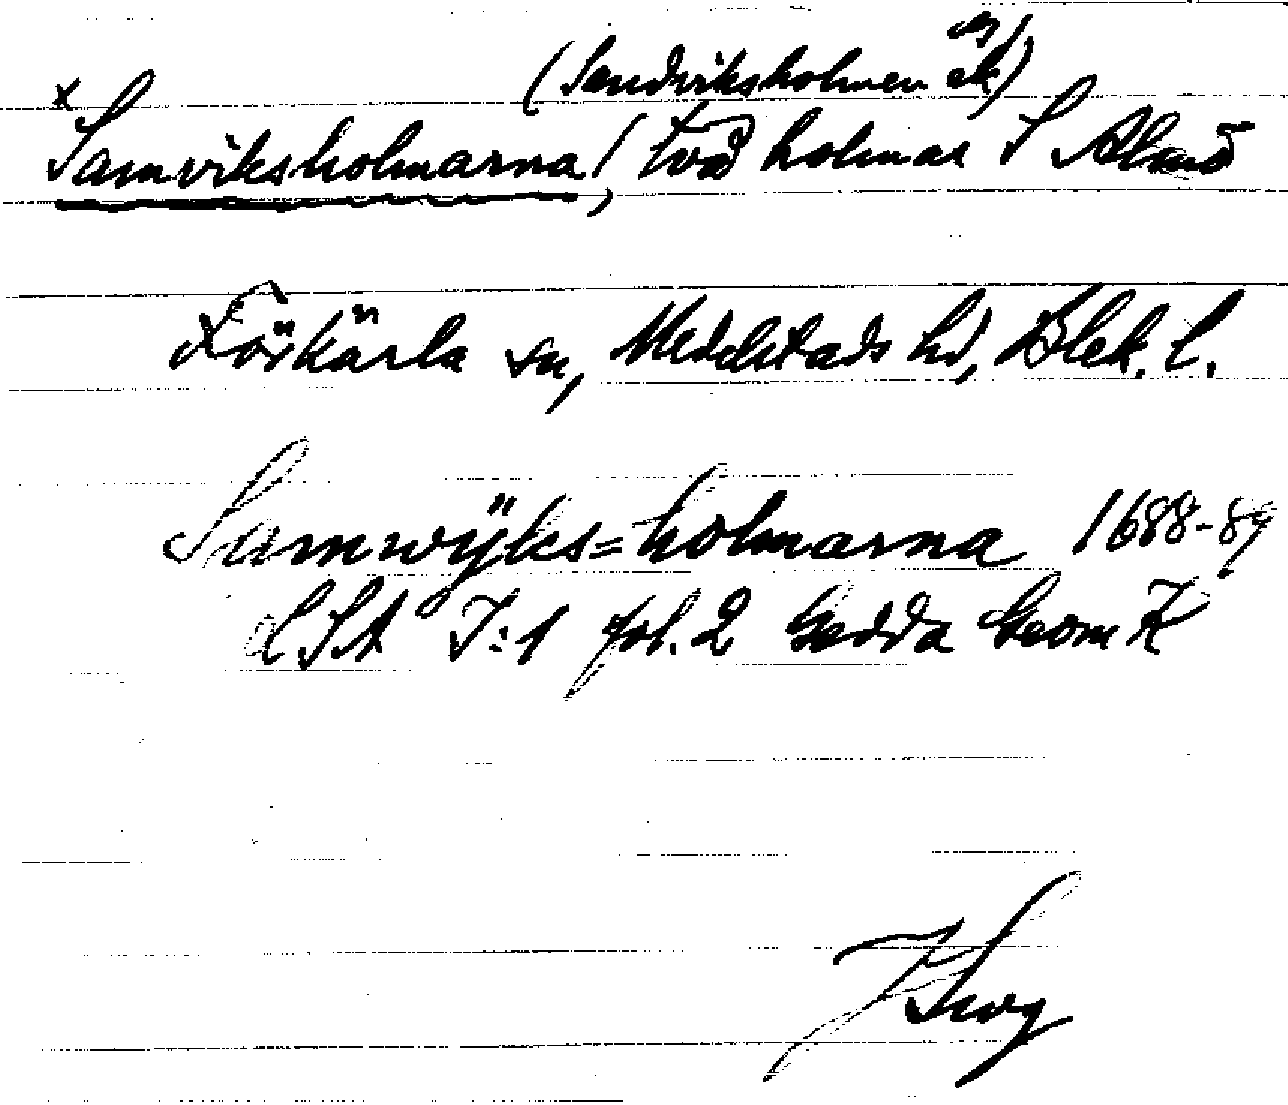 (Sandviksholmen ek)
x Samviksholmarna, två holmar S Almö
Förkärla sn, Medelstads hd, Blek. l.
Samwÿks=holmarna 1688-89
LSA I:1 fol. 2 Gedda Geom K